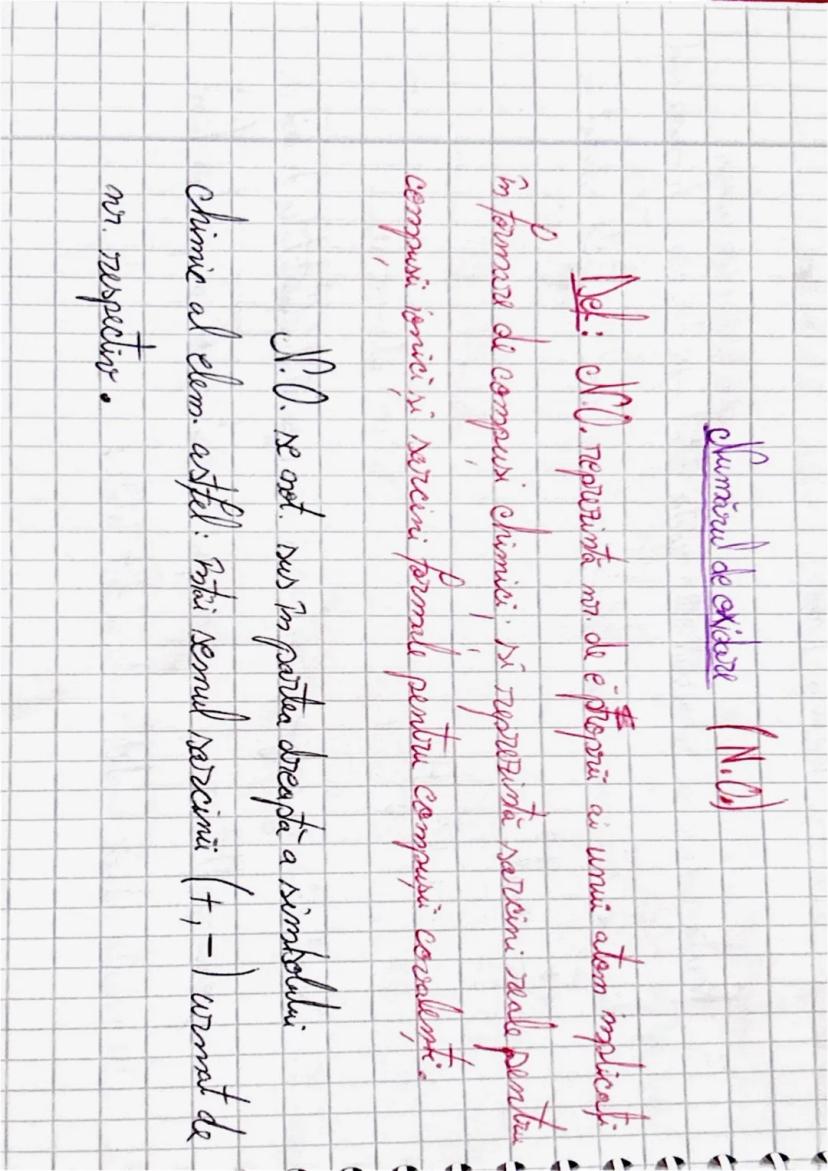 Numărul de oxidare (N.O.)
Def: N.O. reprezintă nr. de e⁻ proprii ai unui atom implicați
în formare de compuși chimici, și reprezintă sarcini reale pentru
compușii ionici și sarcini formale pentru compușii covalenți.
N.O. se not. sus în partea dreaptă a simbolului
chimic al elem. astfel: întâi semnul sarcinii (+, -) urmat de
nr. respectiv.